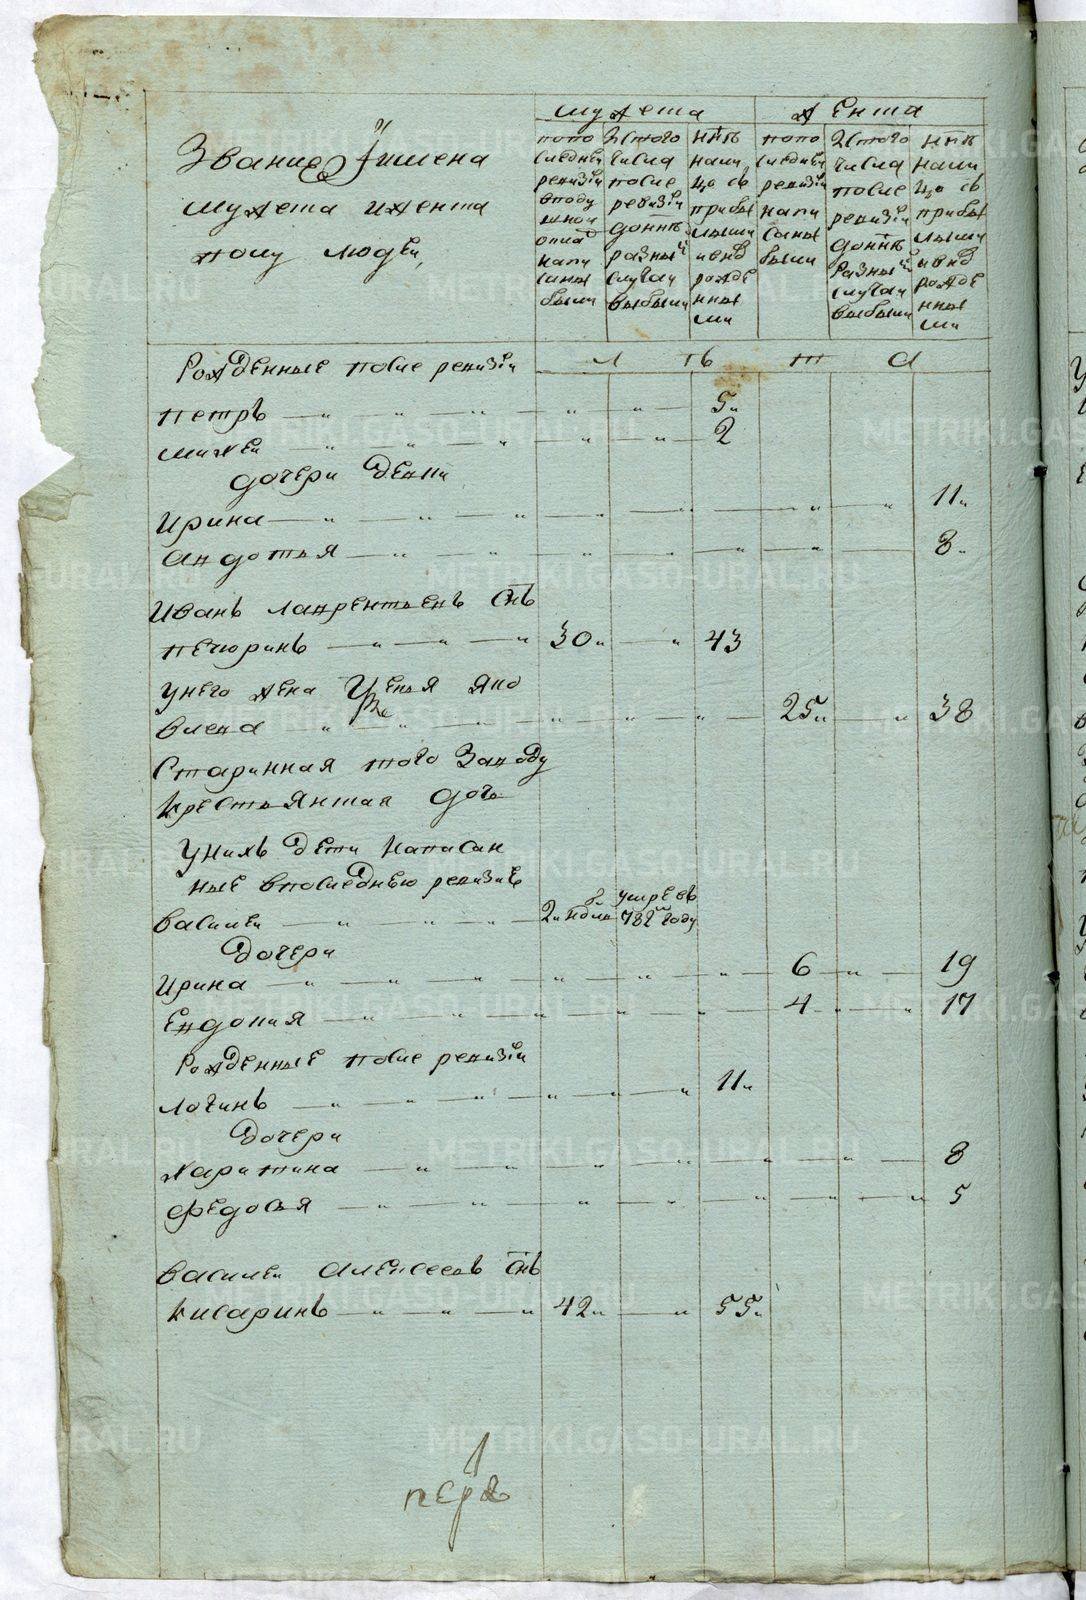 Звание Jимена
мужеска иженска
полу людеи,
мужеска
женска
попо
следней
ревизiи
вподу
шной
оклад
напи
саны
были
Jзтого
числа
после
ревизiи
доннѣ
разныѣ
случаи
выбыли
ннѣ
нали
цо съ
прибы
лыми
ивнѡ
рожде
нны
ми
попо
следней
ревизiи
напи
саны
были
Jзтого
числа
после
ревизiи
доннѣ
разныѣ
случаи
выбыли
ннѣ
нали
цо съ
прибы
лыми
ивнѡ
рожде
нны
ми
Рожденные после ревизiи
л ѣ т а
петръ 5
михеи 2
дочери девки
Ирина 11
Авдотья 8
Иванъ лаврентьевъ снъ
печюринъ 30 43
унего жена яко
влева 25 38
Старинная того Заводу
крестьянская дочь
унихъ дети написан
ные впоследнею ревизию
василеи 2 ндль умре въ
782м году
Дочери
Ирина 6 19
Евдокия 4 17
Рожденные после ревизiи
логинъ 11
Дочери
харитина 8
федосья 5
василеи алексеевъ снъ
кисаринъ 42 55
METRIKI.GASO-URAL.RU